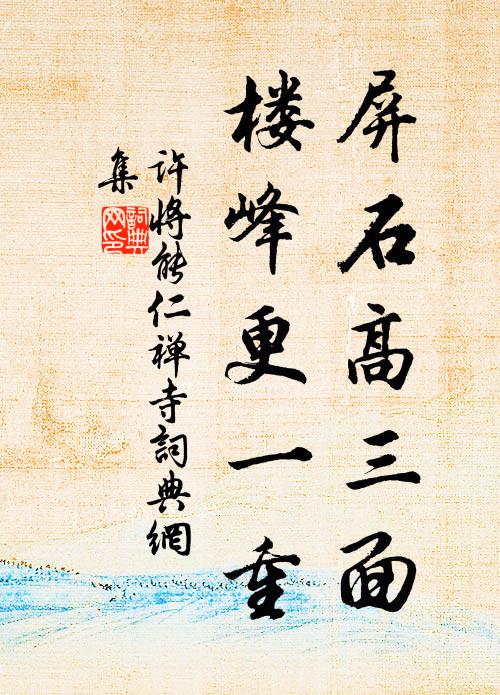 屏石高三面
楼峰更一重
许将能仁禅寺詞典網
集
詞典
网印